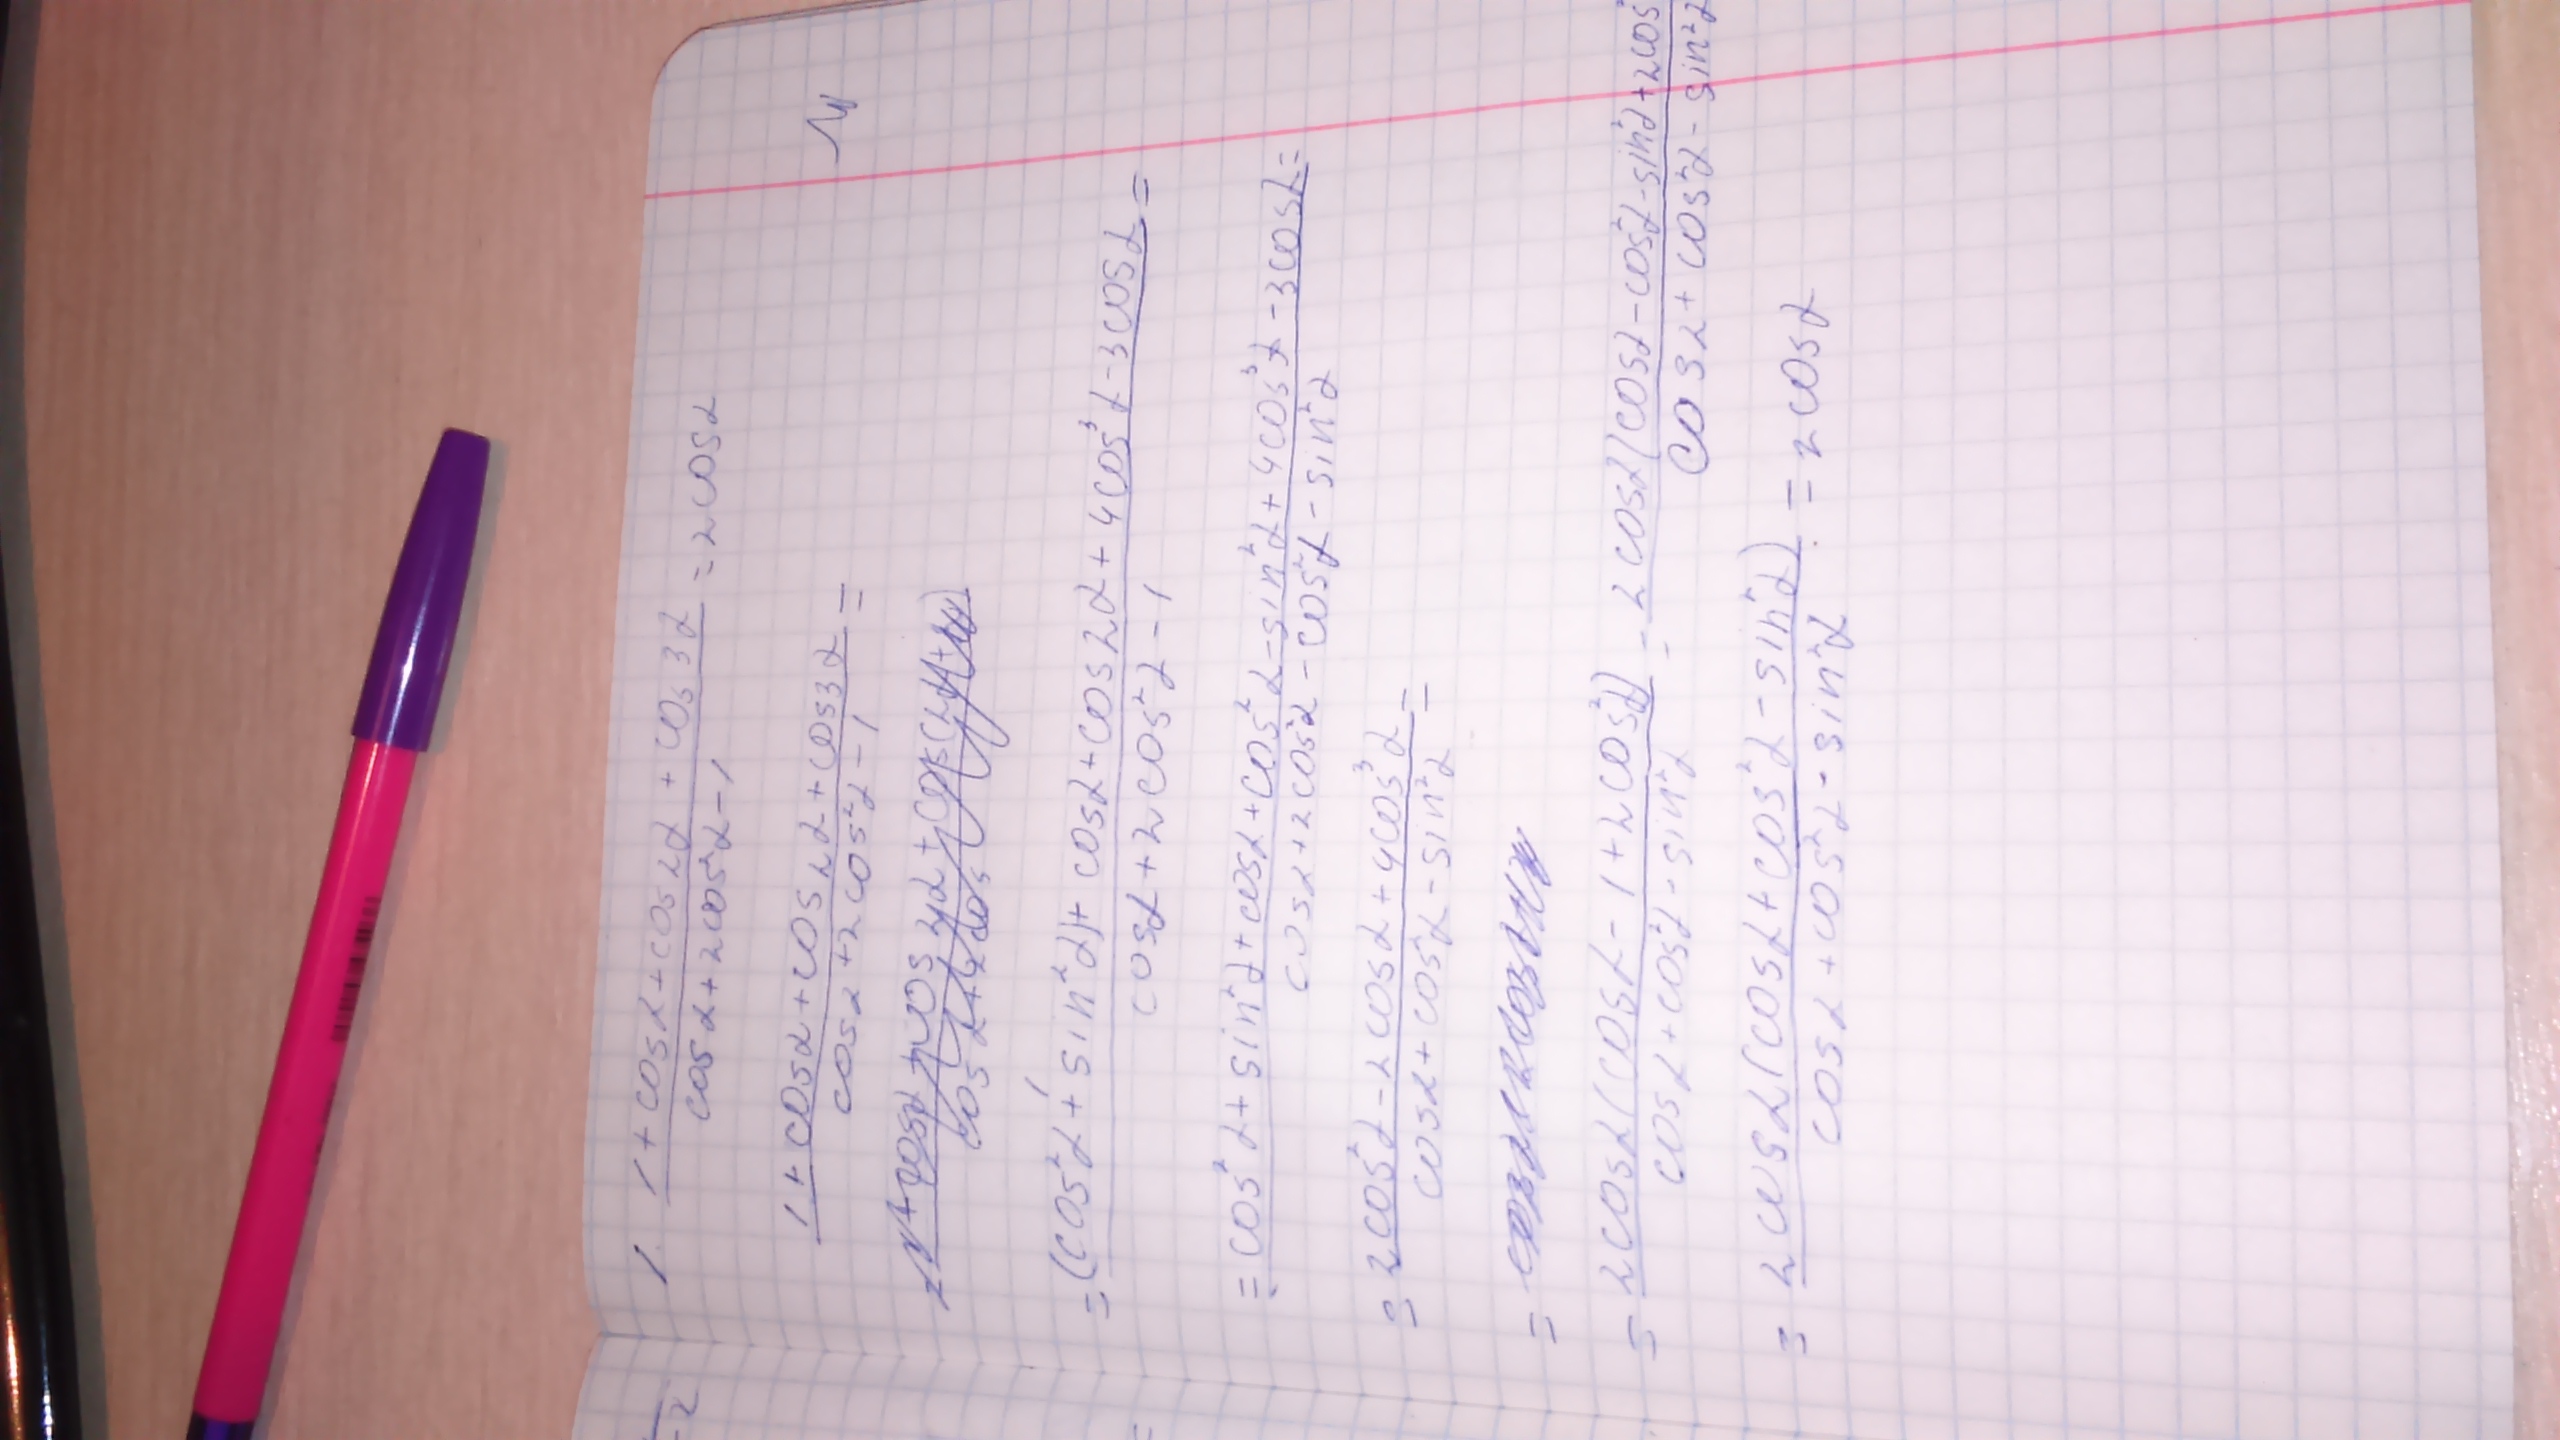 1. (1 + cosα + cos2α + cos3α)/(cosα + 2cos²α - 1) = 2cosα
(1 + cosα + cos2α + cos3α)/(cosα + 2cos²α - 1) =
= (cos²α + sin²α) + cosα + cos2α + 4cos³α - 3cosα/(cosα + 2cos²α - 1) =
= (cos²α + sin²α + cosα + cos²α - sin²α + 4cos³α - 3cosα)/(cosα + 2cos²α - cos²α - sin²α) =
= (2cos²α - 2cosα + 4cos³α)/(cosα + cos²α - sin²α) =
=
= 2cosα(cosα - 1 + 2cos²α)/(cosα + cos²α - sin²α) = 2cosα(cosα - cos²α - sin²α + 2cos²/(cosα + cos²α - sin²α
= 2cosα(cosα + cos²α - sin²α)/(cosα + cos²α - sin²α) = 2cosα